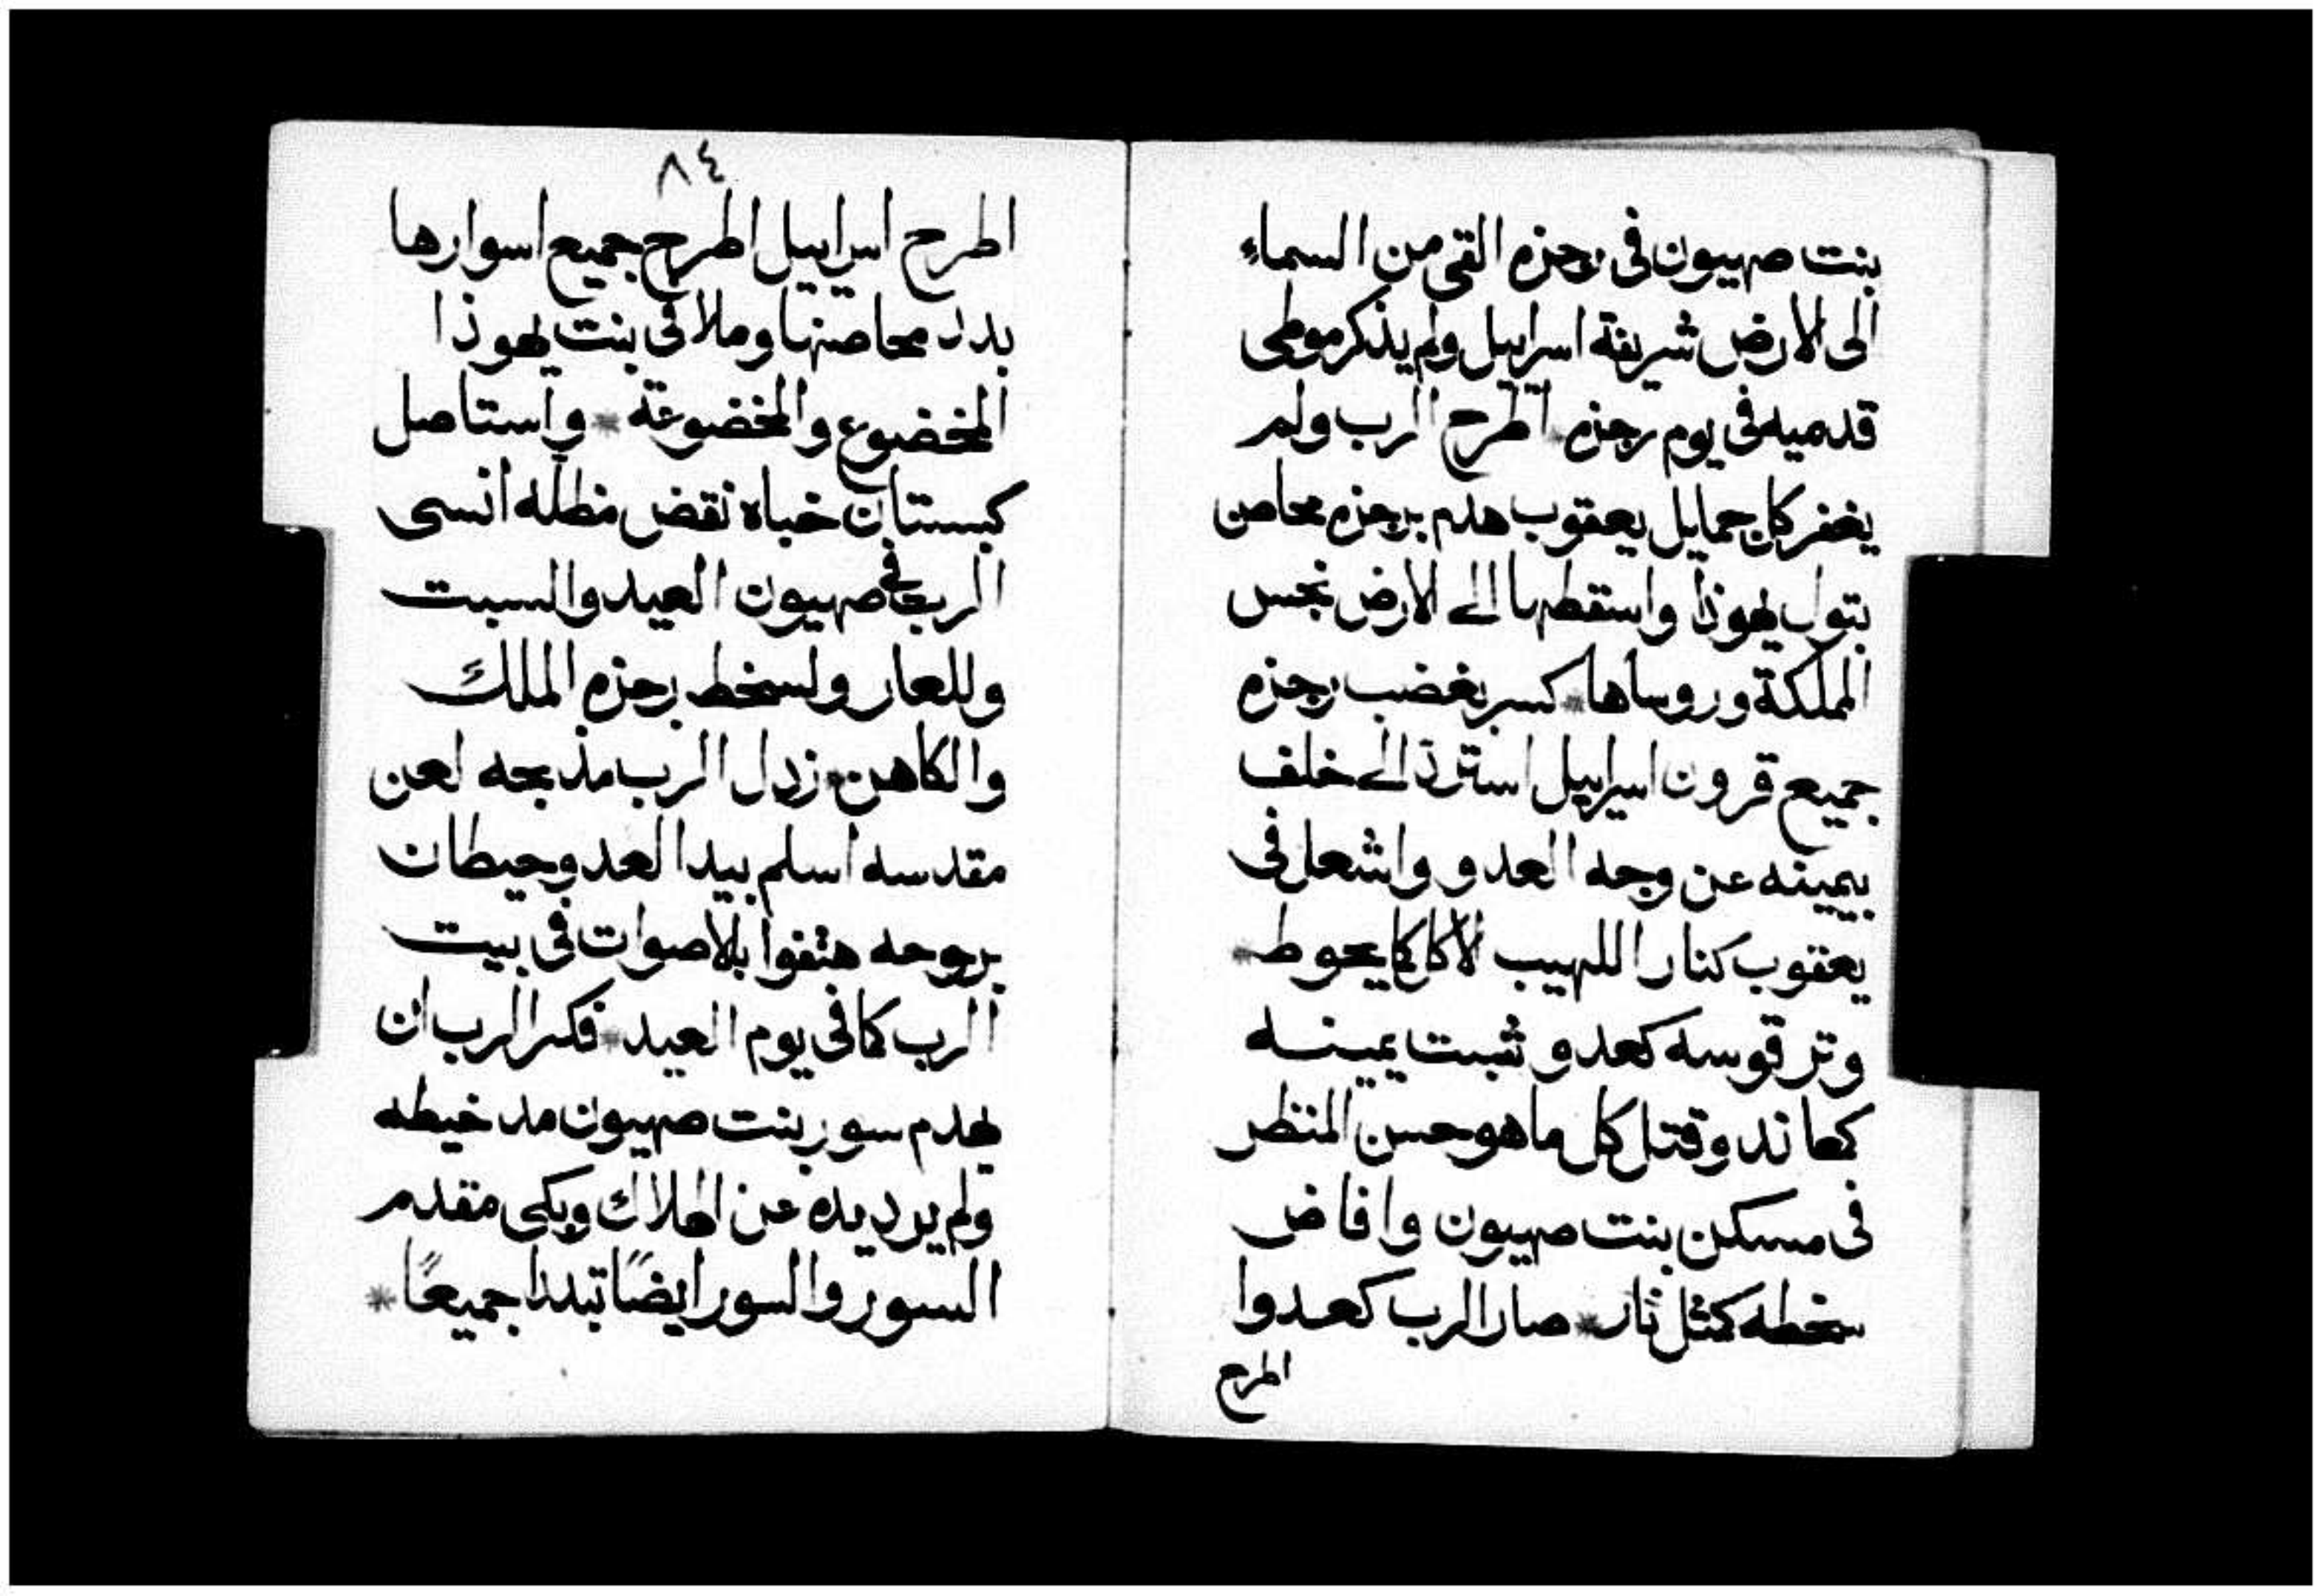 بنت صهيون فى رجزه القى من السماء
الى الارض شريفة اسراييل ولم يذكر موطى
قدميه فى يوم رجزه اطرح الرب ولم
يغفر كل جمايل يعقوب هدم برجزه محاصن
بتول يهوذا واسقطها الے الارض نجس
المملكة وروساها * كسر بغضب رجزه
جميع قرون اسراييل استرد الے خلف
بيمينه عن وجه العدو واشعل فى
يعقوب كنار اللهيب لاكل كما يحوط *
وتر قوسه كعدو ثبت يمينه
كمعاند وقتل كل ما هو حسن المنظر
فى مسكن بنت صهيون وافاض
سخطه كمثل نار * صار الرب كعدوا
اطرح
٨٤
اطرح اسراييل اطرح جميع اسوارها
بدد محاصنها وملا فى بنت يهوذا
المخضوع والمخضوعة * واستاصل
كبستان خباه نقض مظله انسى
الرب فى صهيون العيد والسبت
وللعار ولسخط رجزه الملك
والكاهن * زدل الرب مذبحه لعن
مقدسه اسلم بيد العدو حيطان
بروحه هتفوا بلاصوات فى بيت
الرب كما فى يوم العيد * فكر الرب ان
يهدم سور بنت صهيون مد خيطه
ولم يرد يده عن الهلاك وبكى مقدم
السور والسور ايضًا تبددا جميعًا *